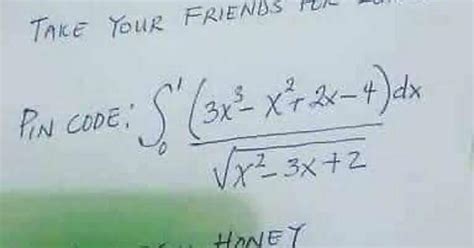 TAKE YOUR FRIENDS FOR
PIN CODE: ∫₀¹ (3x³ - x² + 2x - 4)dx / √(x² - 3x + 2)
HONEY